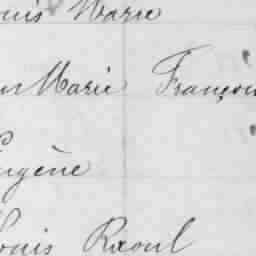 ouis Marie
Marie François
Eugène
Louis Raoul